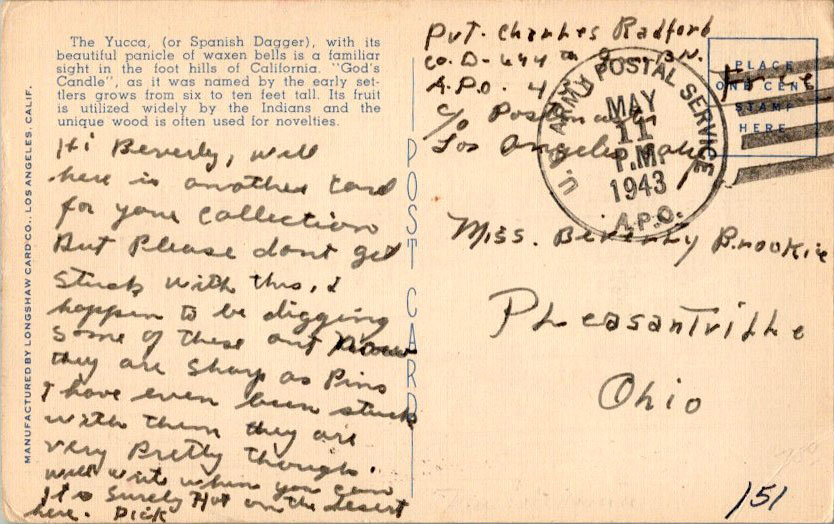 The Yucca, (or Spanish Dagger), with its
beautiful panicle of waxen bells is a familiar
sight in the foot hills of California. "God's
Candle", as it was named by the early set-
tlers grows from six to ten feet tall. Its fruit
is utilized widely by the Indians and the
unique wood is often used for novelties.
MANUFACTURED BY LONGSHAW CARD CO., LOS ANGELES, CALIF.
POST CARD
Hi Beverly, well
here is another card
for your collection
But Please dont get
stuck with this, I
happen to be digging
some of these out now
they are sharp as Pins
I have even been stuck
with them they are
very Pretty though.
well write when you can
It's surely Hot on the desert
here. Dick
Pvt. Charles Radford
Co. D- 644th BN.
A.P.O. 4
c/o Postmaster
Los Angeles Calif
Free
PLACE
ONE CENT
STAMP
HERE
U.S. ARMY POSTAL SERVICE
MAY
11
P.M.
1943
A.P.O.
Miss. Beverly Brookie
Pleasantville
Ohio
151